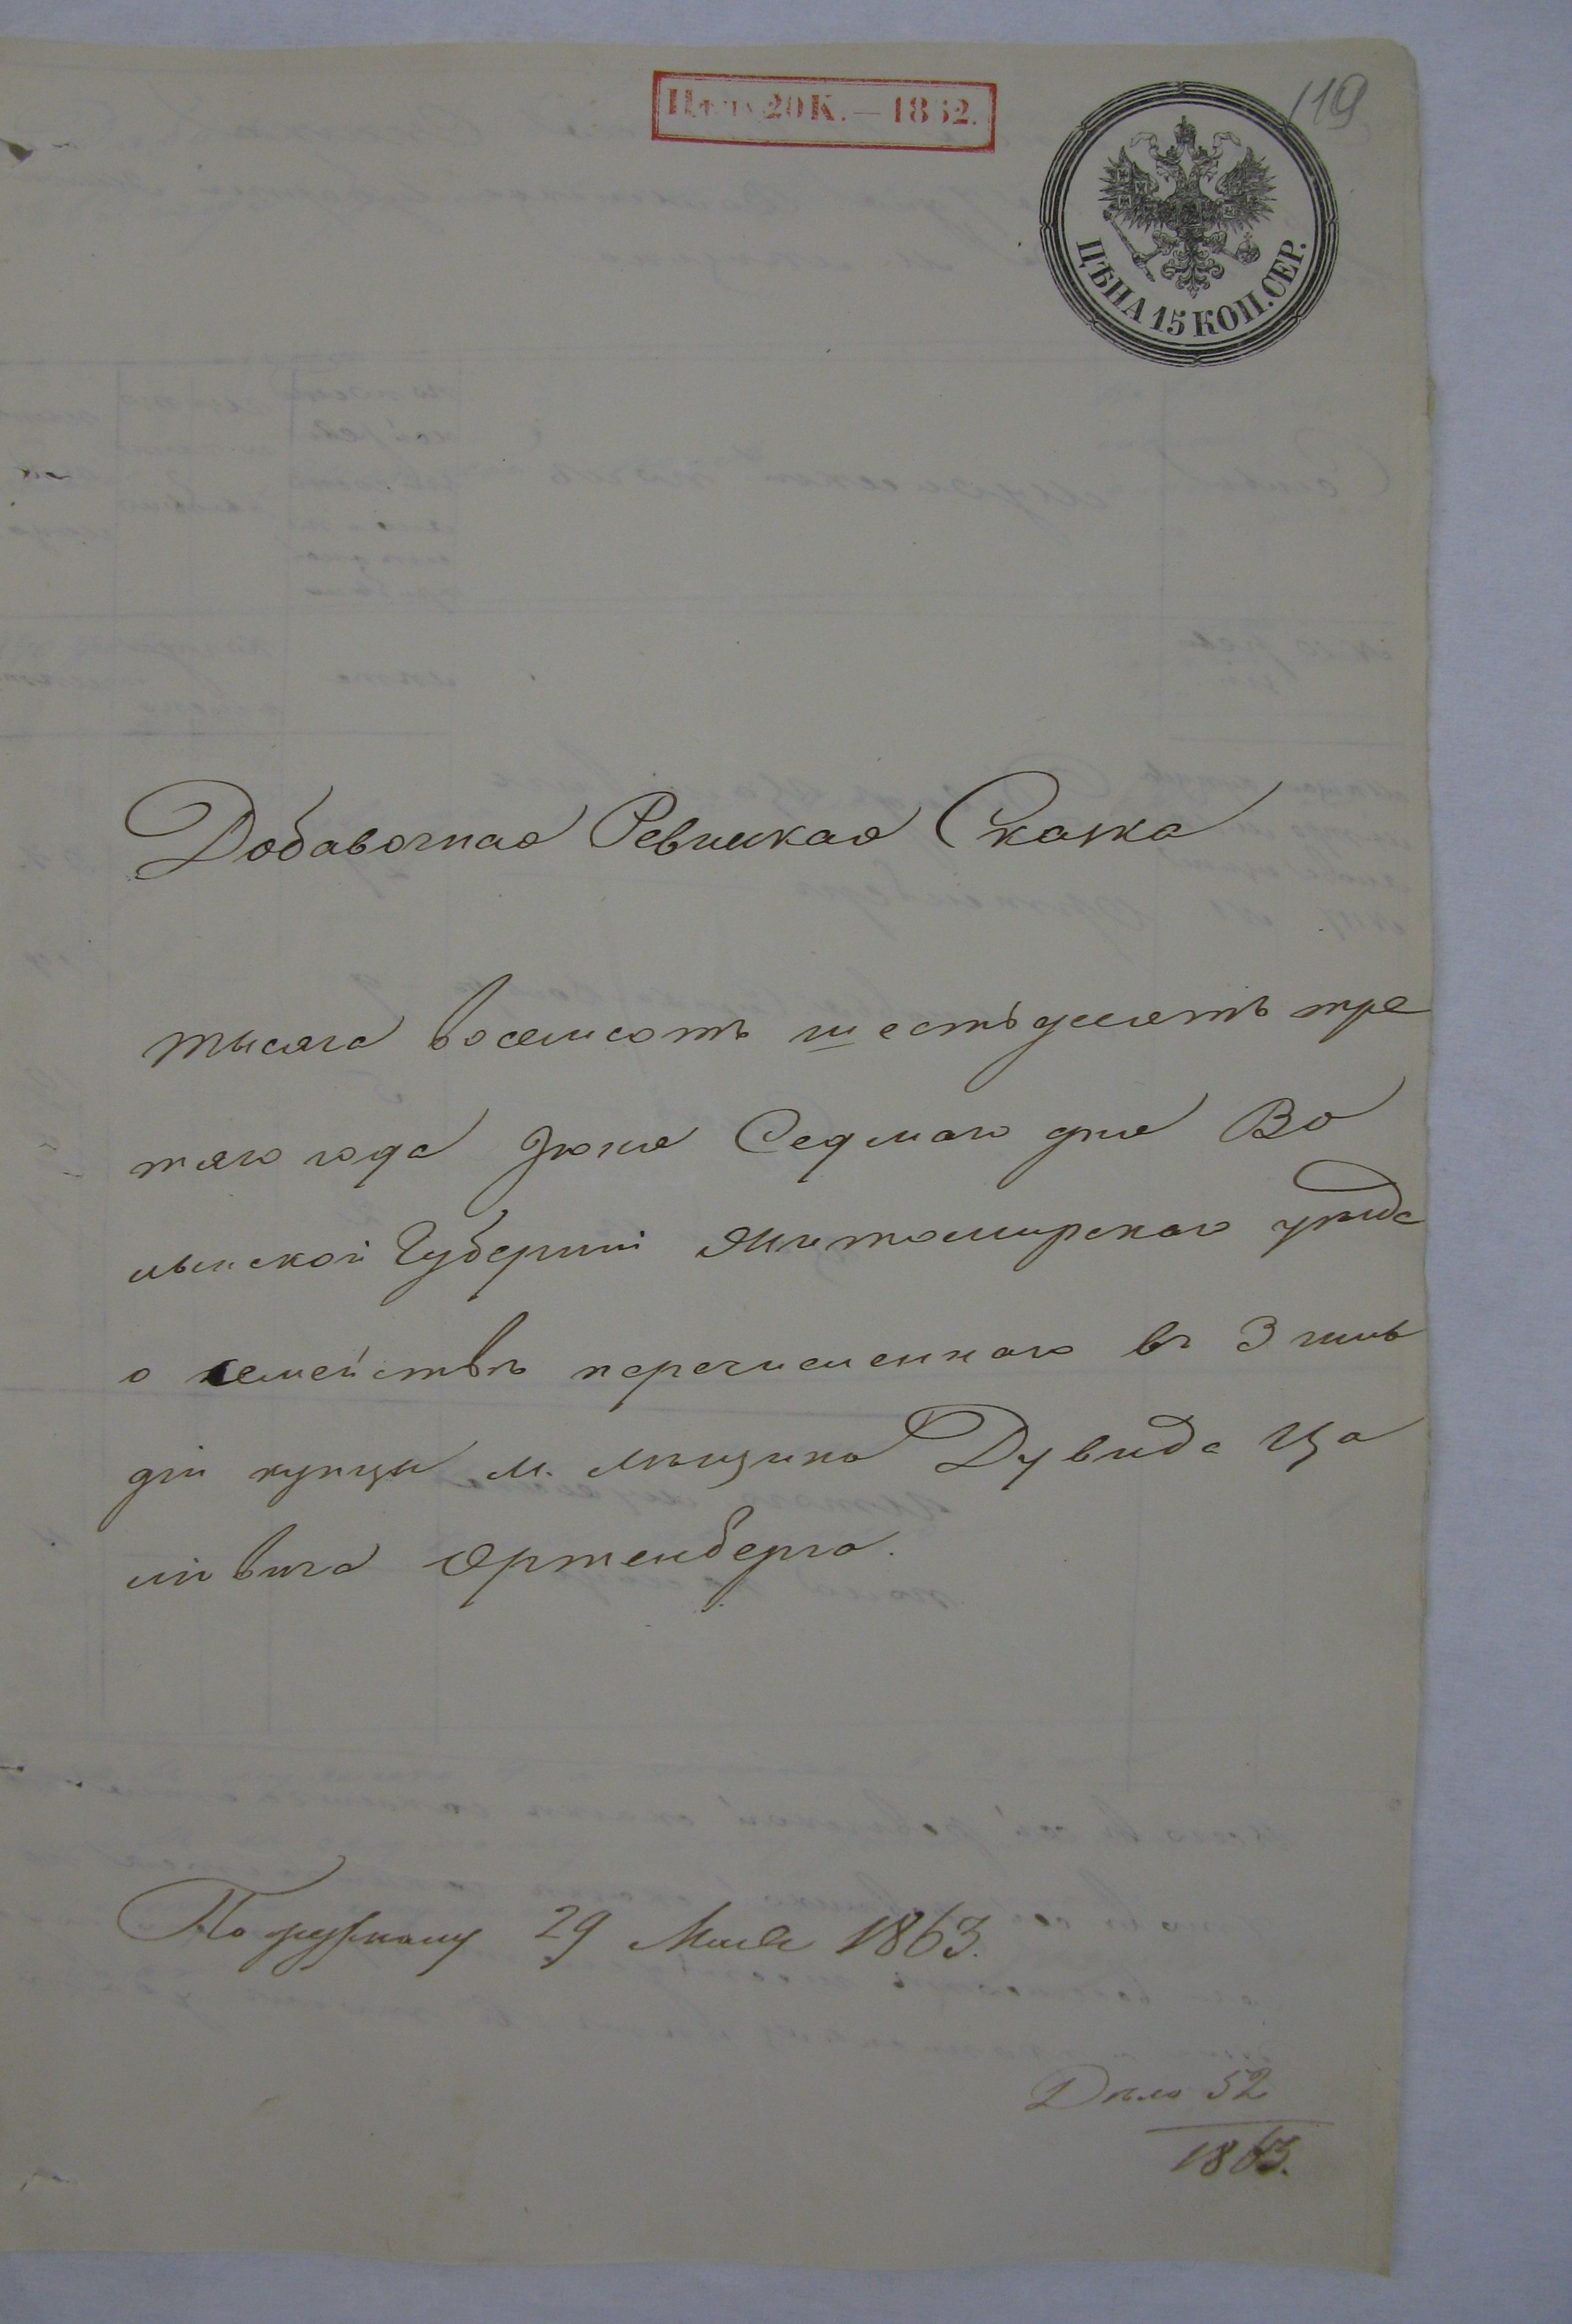 119
Цѣна 20 К. — 1862.
ЦѢНА 15 КОП. СЕР.
Добавочная Ревизкая Сказка
тысяча восемсотъ шестьдесятъ тре
тяго года Июня Седмаго дня Во
лынской Губерніи Житомирскаго уѣзда
о семействѣ перечисленнаго въ 3 гиль
діи купцы м.  Дувида Ца
ліовича Ортенберга.
По журналу 29 Мая 1863.
Дѣло 52
1863.